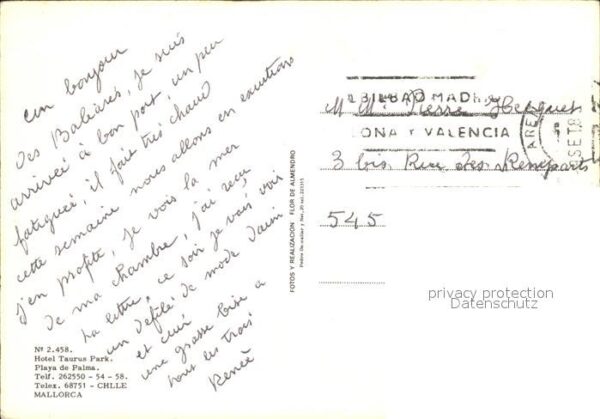 un bonjour
Des Baléares, je suis
arrivée à bon port, un peu
fatiguée, il fait très chaud
cette semaine nous allons en excurtions
J'en profite, je vois la mer
de ma chambre, j'ai reçu
ta lettre, ce soir je vais voir
un défilé de mode Daim
et cuir
une grosse bise a
tous les trois
Renée
Nº 2.458.
Hotel Taurus Park.
Playa de Palma.
Telf. 262550 - 54 - 58.
Telex. 68751 - CHLLE
MALLORCA
FOTOS Y REALIZACION FLOR DE ALMENDRO
BILBAO MADR
LONA Y VALENCIA
M. M. Pierre
3 bis Rue des Remparts
545
privacy protection
Datenschutz